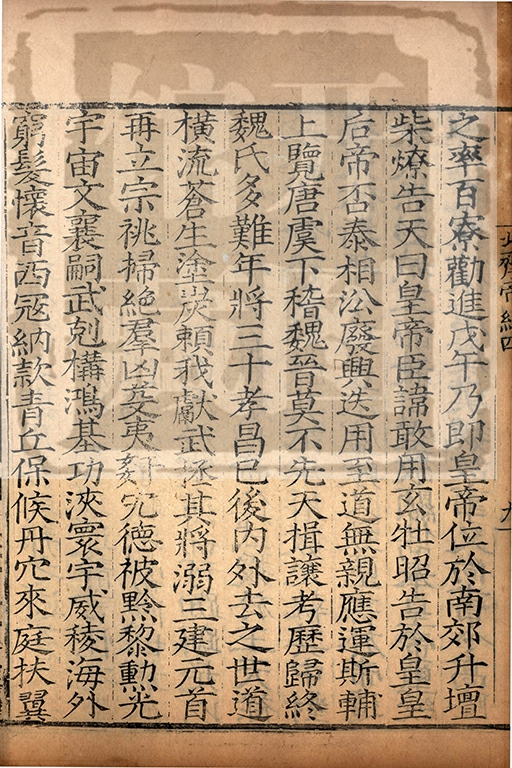 北齊帝紀四 九
之率百寮勸進戊午乃即皇帝位於南郊升壇
柴燎告天曰皇帝臣諱敢用玄牡昭告於皇皇
后帝否泰相㳂廢興迭用至道無親應運斯輔
上覽唐虞下稽魏晉莫不先天揖讓考歷歸終
魏氏多難年將三十孝昌已後内外去之世道
橫流蒼生塗炭賴我獻武拯其將溺三建元首
再立宗祧掃絶羣凶芟夷姦宄德被黔黎勳光
宇宙文襄嗣武剋構鴻基功浹寰宇威稜海外
窮髮懷音西冦納款青丘保候丹穴來庭扶翼